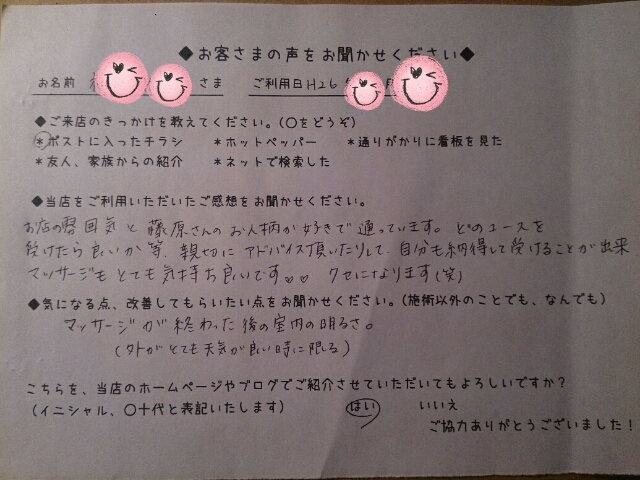 ◆お客さまの声をお聞かせください◆
お名前 さま ご利用日H26
◆ご来店のきっかけを教えてください。(〇をどうぞ)
*ポストに入ったチラシ *ホットペッパー *通りがかりに看板を見た
*友人、家族からの紹介 *ネットで検索した
◆当店をご利用いただいたご感想をお聞かせください。
お店の雰囲気と藤原さんのお人柄が好きで通っています。どのコースを
受けたら良いか等、親切にアドバイス頂いたりして、自分も納得して受けることが出来
マッサージもとても気持ち良いです♡♡ クセになります(笑)
◆気になる点、改善してもらいたい点をお聞かせください。(施術以外のことでも、なんでも)
マッサージが終わった後の室内の明るさ。
(外がとても天気が良い時に限る)
こちらを、当店のホームページやブログでご紹介させていただいてもよろしいですか?
(イニシャル、〇十代と表記いたします) はい いいえ
ご協力ありがとうございました!